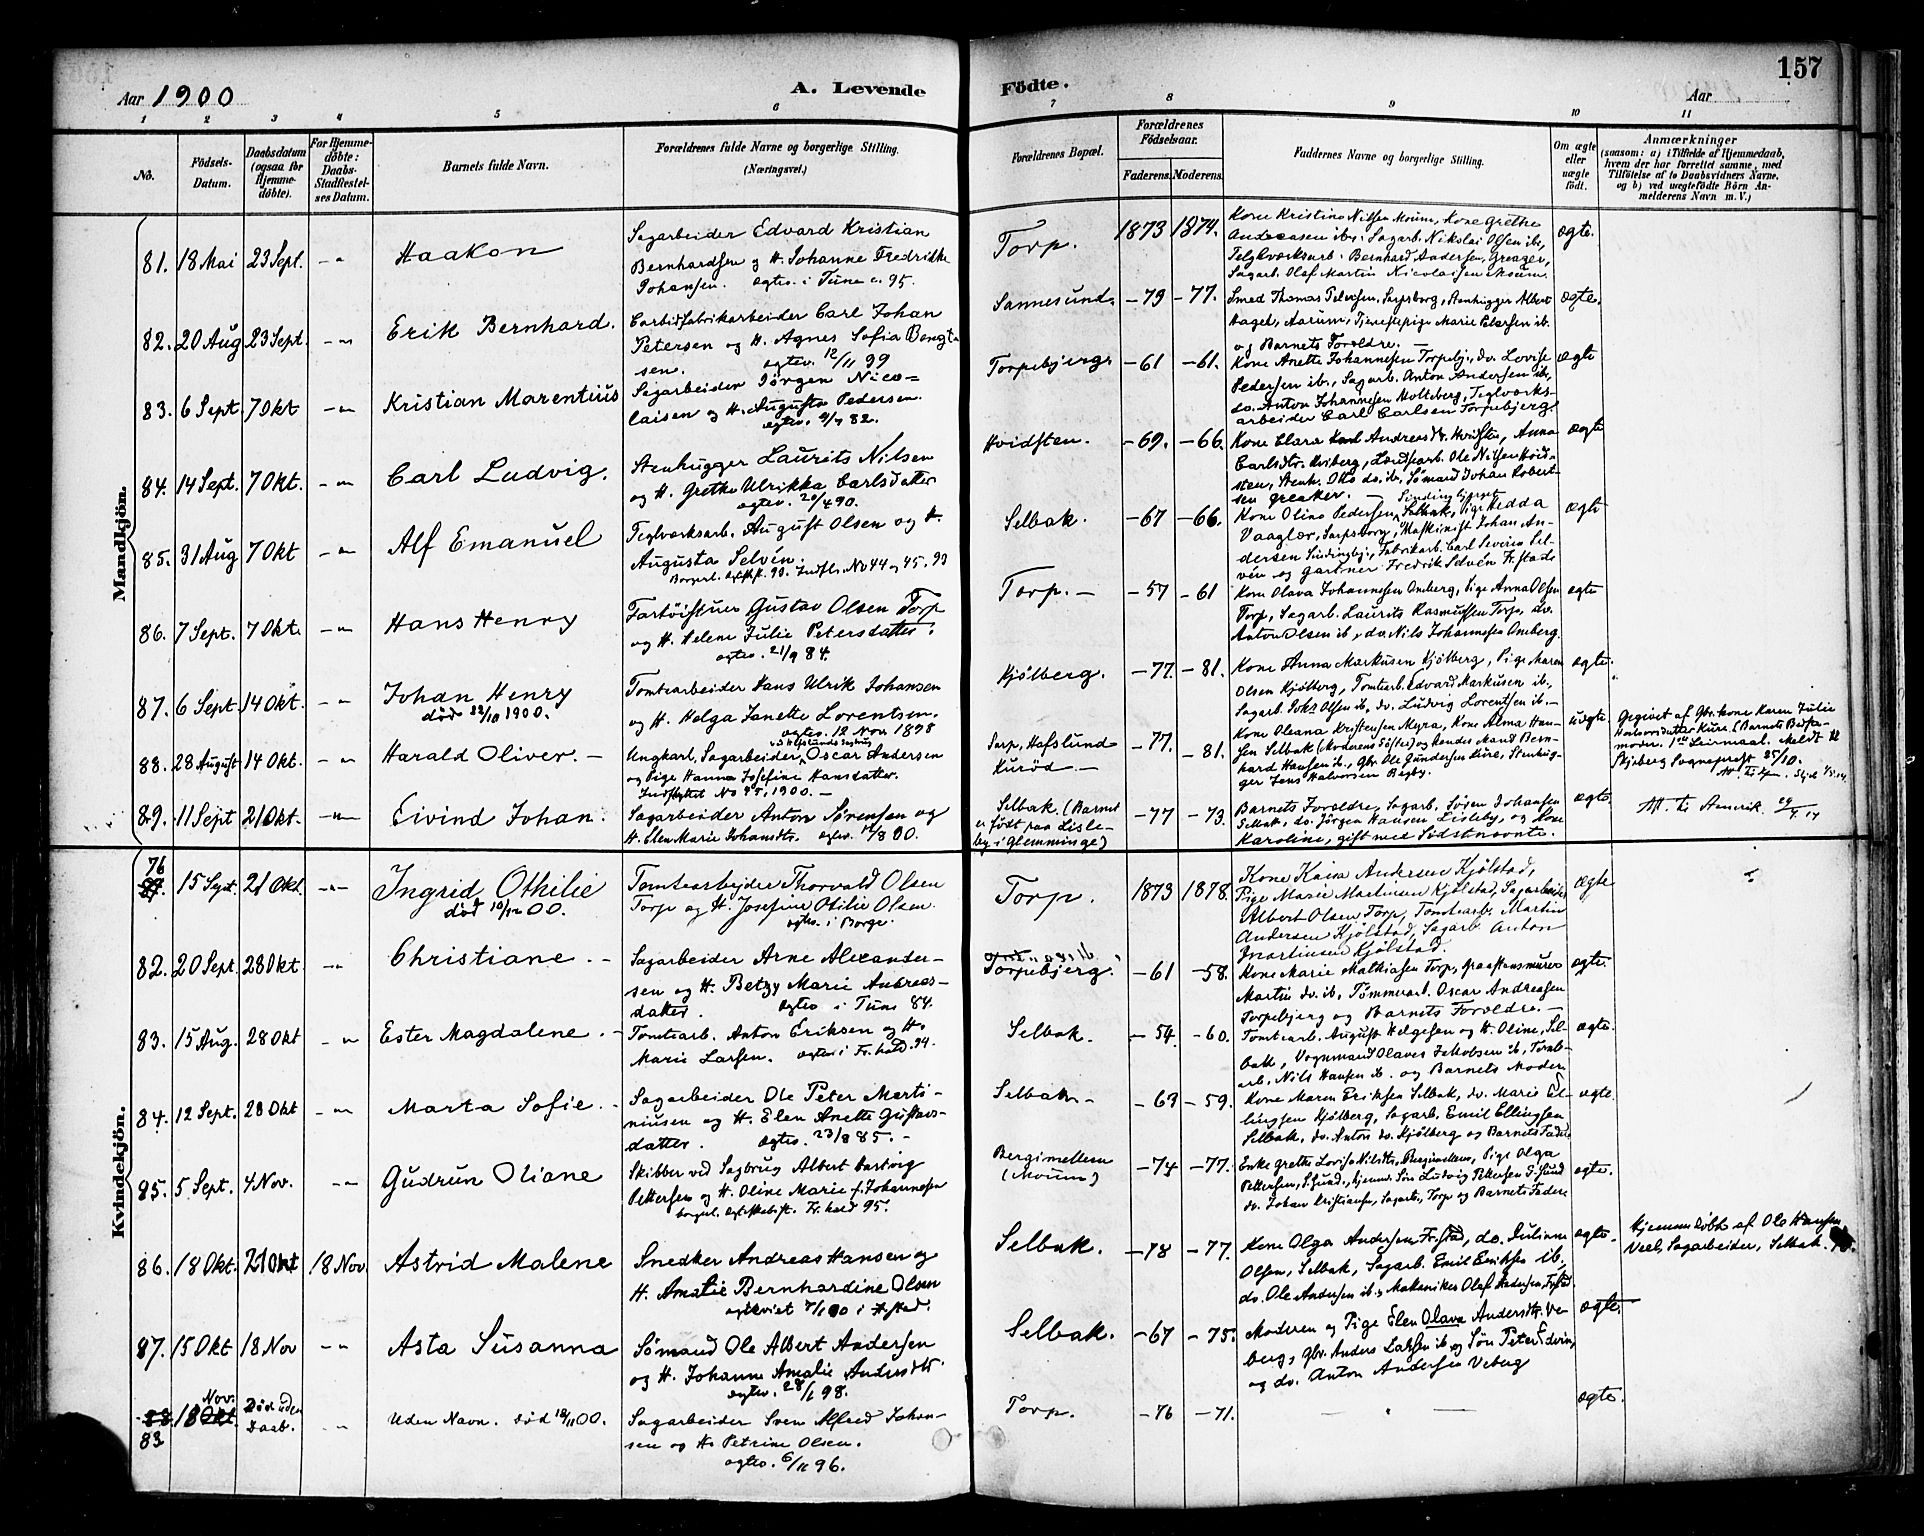 157
Aar 1900
A. Levende
Födte.
Aar
1 2 3 4 5 6 7 8 9 10 11
No.
Födsels-Datum.
Daabsdatum (ogsaa for Hjemme-döbte).
For Hjemme-döbte: Daabs-Stadfæstel-ses Datum.
Barnets fulde Navn.
Forældrenes fulde Navne og borgerlige Stilling.
(Næringsvei.)
Forældrenes Bopæl.
Forældrenes Födselsaar.
Faderens. Moderens.
Faddernes Navne og borgerlige Stilling.
Om ægte eller uægte födt.
Anmærkninger
(saasom: a) i Tilfælde af Hjemmedaab, hvem der har forrettet samme, med Tilföielse af to Daabsvidners Navne, og b) ved uægtefödte Börn Anmelderens Navn m. V.)
Mandkjön.
81. 18 Mai 23 Sept. Haakon
Sagarbeider Edvard Kristian
Bernhardsen og H. Johanne Fredrikke
Johansen. ægtev. i Tune c. 95.
Torp. 1873 1874.
Kone Kristine Nilsen Moum, Kone Grethe
Andreasen ib., Sagarb. Nikolai Olsen ib.,
Teglværksarb. Bernhard Andersen, Greager,
Sagarb. Olaf Martin Nicolaisen Moum.
ægte.
82. 20 Aug 23 Sept. Erik Bernhard.
Carbidfabrikarbeider Carl Johan
Petersen og H. Agnes Sofia Bengt
sen. ægtev. 12/11 99
Sannesund. -79 -77.
Smed Thomas Petersen, Sarpsborg, Stenhugger Albert
Haget, Aarum, Tjenestepige Marie Petersen ib.
og Barnets Forældre.
ægte.
83. 6 Sept 7 Okt Kristian Marentius
Sagarbeider Jörgen Nico-
laisen og H. Augusta Pedersen.
82.
Torpebjerg -61 -61.
Kone Anette Johannesen Torpebj., do. Lovise
Pedersen ib., Sagarb. Anton Andersen ib.,
do. Anton Johannesen Holteberg, Teglværks-
arbeider Carl Carlsen Torpebjerg.
ægte
84. 14 Sept. 7 Okt. Carl Ludvig.
Stenhugger Laurits Nilsen
og H. Grethe Ulrikka Carlsdatter
ægtev. 20/4 90.
Hvidsten. -69. -66.
Carlsdtr. Kviberg, Ole Nilsen Hvid-
sten, Stenh. Otto do. ib., Sömand Johan Robert-
sen Greaker.
ægte
85. 31 Aug 7 Okt Alf Emanuel
Teglværksarb. August Olsen og H.
Augusta Selvén.
Torp
Selbak. -67 -66.
Kone Oline Pedersen Selbak, Pige Hedda
Vaagler, Sarpsborg, Maskinist Johan An-
dersen Sindingbj., Fabrikarb. Carl Severin Sel-
vén og Gartner Fredrik Selvén Fr.stad
ægte
86. 7 Sept. 7 Okt. Hans Henry
Fartöistuer Gustav Olsen Torp
og H. Helene Julie Petersdatter.
ægtev. 21/9 84.
Torp. -57 -61
Kone Olava Johannesen Omberg, Pige Anna Olsen
Torp, Sagarb. Laurits Rasmussen Torp, do.
Anton Olsen ib., do. Nils Johannesen Omberg.
ægte
87. 6 Sept. 14 Okt. Johan Henry
död 1900.
Tomtearbeider Hans Ulrik Johansen
og H. Helga Janette Lorentsen.
ægtev. 12 Nov 1898
Kjölberg. -77. -81.
Kone Anna Markusen Kjölberg, Pige Maren
Olsen Kjölberg, Tomtearb. Edvard Markusen ib.,
Sagarb. Johs Olsen ib., do. Ludvig Lorentsen ib.
ægte.
88. 28 August 14 Okt. Harald Oliver.
Ungkarl, Sagarbeider Oscar Andersen
og Pige Hanna Josefine Hansdatter.
Indflyttet No 1900.
Torp, Hafslund
Kuröd -77. -81.
Kone Oleana Kristensen Myra, Kone Alma Han-
sen Selbak (Moderens Söster) og hendes Mand Bern-
hard Hansen ib., Gbr. Ole Gundersen Kure, Stenhug-
ger Jens Halvorsen Begby.
uægte.
Opgivet af Gbr. kone Karen Julie
Halvorsdatter Kure (Barnets Bedste-
moder. 1ste Leiermaal. Meldt til
Skjeberg Sognepræst 25/10.
89. 11 Sept 21 Okt. Eivind Johan.
Sagarbeider Anton Sörensen og
H. Elen Marie Johansdtr. ægtev. 00.
Selbak. (Barnet
er födt paa Lisle-
by i Glemminge) -77 -73.
Barnets Forældre, Sagarb. Sören Johansen
Selbak, do. Jörgen Hansen Lisleby, og Kone
Karoline, gift med Sidstnævnte.
ægte.
Att. til Amerik.
Kvindekjön.
76 15 Sept. 21 Okt. Ingrid Othilie
död 00.
Tomtearbejder Thorvald Olsen
Torp og H. Josefine Otilie Olsen.
ægtev. i Borge.
Torp. 1873 1878.
Kone Kaisa Andersen Kjölstad,
Pige Marie Martinsen Kjölstad, Sagarbeider
Albert Olsen Torp, Tomtearb. Martin
Andersen Kjölstad, Sagarb. Anton
Martinsen Kjölstad.
ægte
82. 20 Sept. 28 Okt. Christiane.
Sagarbeider Arne Alexander-
sen og H. Betzy Marie Andreas-
datter. ægtev. i Tune 84.
Torpebjerg. -61 -58.
Kone Marie Mathiasen Torp, Graastensmurer
Martin do. ib., Tömmerarb. Oscar Andreasen
Torpebjerg og Barnets Forældre.
ægte.
83. 15 Aug. 28 Okt Ester Magdalene.
Tomtearb. Anton Eriksen og H.
Marie Larsen. ægtev. i Fr.hald. 94.
Selbak. -54. -60.
Tomtearb. August Helgesen og H. Oline, Sel-
bak, Vognmand Olaves Jakobsen ib., Tomte-
arb. Nils Hansen ib. og Barnets Moder
ægte.
84. 12 Sept. 28 Okt Marta Sofie.
Sagarbeider Ole Peter Marti-
niusen og H. Elen Anette Gustavs-
datter. ægtev. 23/8 85.
Selbak. -63 -59.
Kone Maren Eriksen Selbak, do. Marie El-
lingsen Kjölberg, Sagarb. Emil Ellingsen
Selbak, do. Anton do. Kjölberg og Barnets Fader
ægte.
85. 5 Sept. 4 Nov. Gudrun Oliane
Skibber ved Sagbrug Albert Hartvig
Pettersen og H. Oline Marie f. Johannesen
borgerl. Ægteskabsst. Fr.hald 95.
Bergimellem
(Moum) -74 -77.
Enke Grethe Lovise Nilsdtr., Bergimellem, Pige Olga
Pettersen, Sön Ludvig Pettersen
do. Johan Cristiansen, Sagarb., Torp og Barnets Fader
ægte.
86. 18 Okt. 21 Okt 18 Nov Astrid Malene
Snedker Andreas Hansen og
H. Amalie Bernhardine Olsen
ægteviet i
Selbak. -78 -77.
Kone Olga Andersen Fr.stad, do. Juliane
Olsen, Selbak, Sagarb. Emil Eriksen ib.
do. Ole Andersen ib., Mekaniker Olaf Andersen,
ægte.
Hjemmedöbt af Ole Hansen
Veel, Sagarbeider, Selbak.
87. 15 Okt 18 Nov Asta Susanna
Sömand Ole Albert Andersen
og H. Johanne Amalie Andersdtr
ægtev. 28/1 98.
Selbak. -67 -75.
Moderen og Pige Elen Olava Andersdtr. Ve-
berg, Gbr. Anders Larsen ib og Sön Peter Edvin,
og do. Anton Andersen Veberg
ægte.
83 18 Nov. Död uden Daab.
Uden Navn. död 18/11 00.
Sagarbeider Sven Alfred Johan-
sen og H. Petrine Olsen.
ægtev. 6/11 96.
Torp. -76 -71.
ægte.